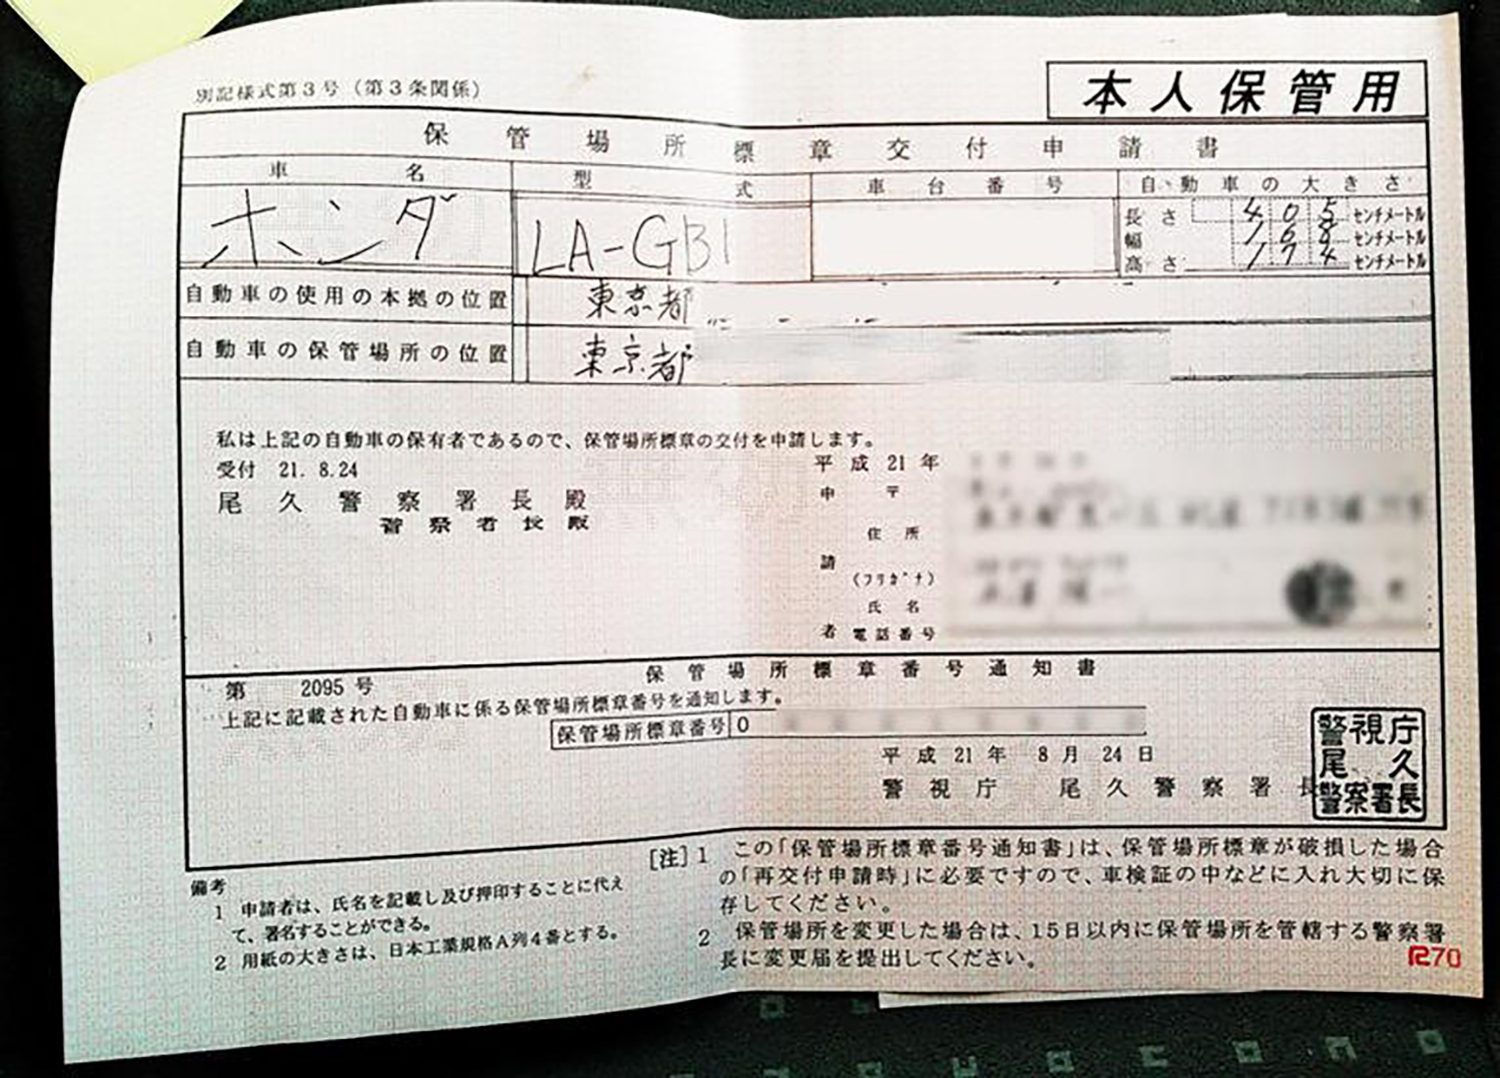 別記様式第3号（第3条関係）
本人保管用
保管場所標章交付申請書
車名 型式 車台番号 自動車の大きさ
ホンダ LA-GB1
長さ 405 センチメートル
幅 168 センチメートル
高さ 174 センチメートル
自動車の使用の本拠の位置 東京都
自動車の保管場所の位置 東京都
私は上記の自動車の保有者であるので、保管場所標章の交付を申請します。
受付 21. 8.24 平成21年
尾久警察署長殿 申 〒
警察署長殿
住所
請 (フリガナ)
氏名
者 電話番号
保管場所標章番号通知書
第 2095 号
上記に記載された自動車に係る保管場所標章番号を通知します。
保管場所標章番号 0
平成21年 8月 24日
警視庁 尾久警察署長
警視庁
尾久
警察署長
備考
1 申請者は、氏名を記載し及び押印することに代え
て、署名することができる。
2 用紙の大きさは、日本工業規格A列4番とする。
[注] 1 この「保管場所標章番号通知書」は、保管場所標章が破損した場合
の「再交付申請時」に必要ですので、車検証の中などに入れ大切に保
存してください。
2 保管場所を変更した場合は、15日以内に保管場所を管轄する警察署
長に変更届を提出してください。
R70